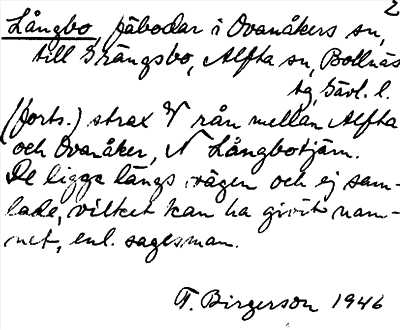 2
Långbo, fäbodar i Ovanåkers sn,
till Grängsbo, Alfta sn, Bollnäs
tg, Gävl. l.
(forts.) strax V rån mellan Alfta
och Ovanåker, N Långbotjärn.
De ligga längs vägen och ej sam-
lade, vilket kan ha givit nam-
net, enl. sagesman.
F. Birgerson 1946